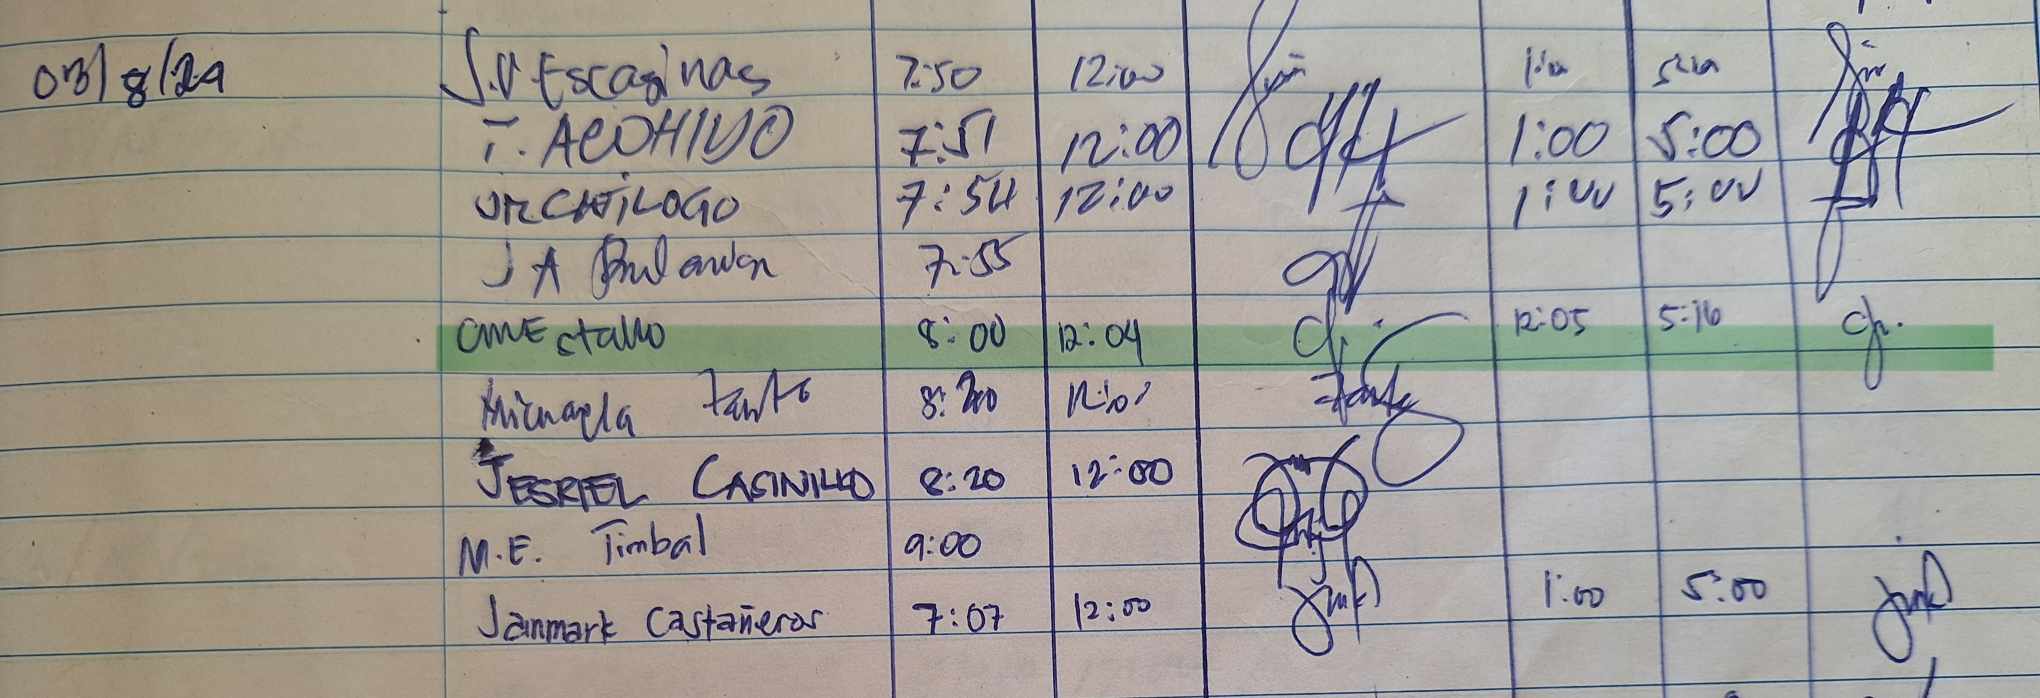 03/8/24 J.V Escaginas 7:50 12:00 1:00 5:00
T. ACOHIDO 7:51 12:00 1:00 5:00
JR CATILOGO 7:54 12:00 1:00 5:00
J A 7:55
CME stallo 8:00 12:04 12:05 5:16
Michaela 8:20
JESRIEL CASINILLO 8:20 12:00
M.E. Timbal 9:00
Janmark Castañeros 7:07 12:00 1:00 5:00